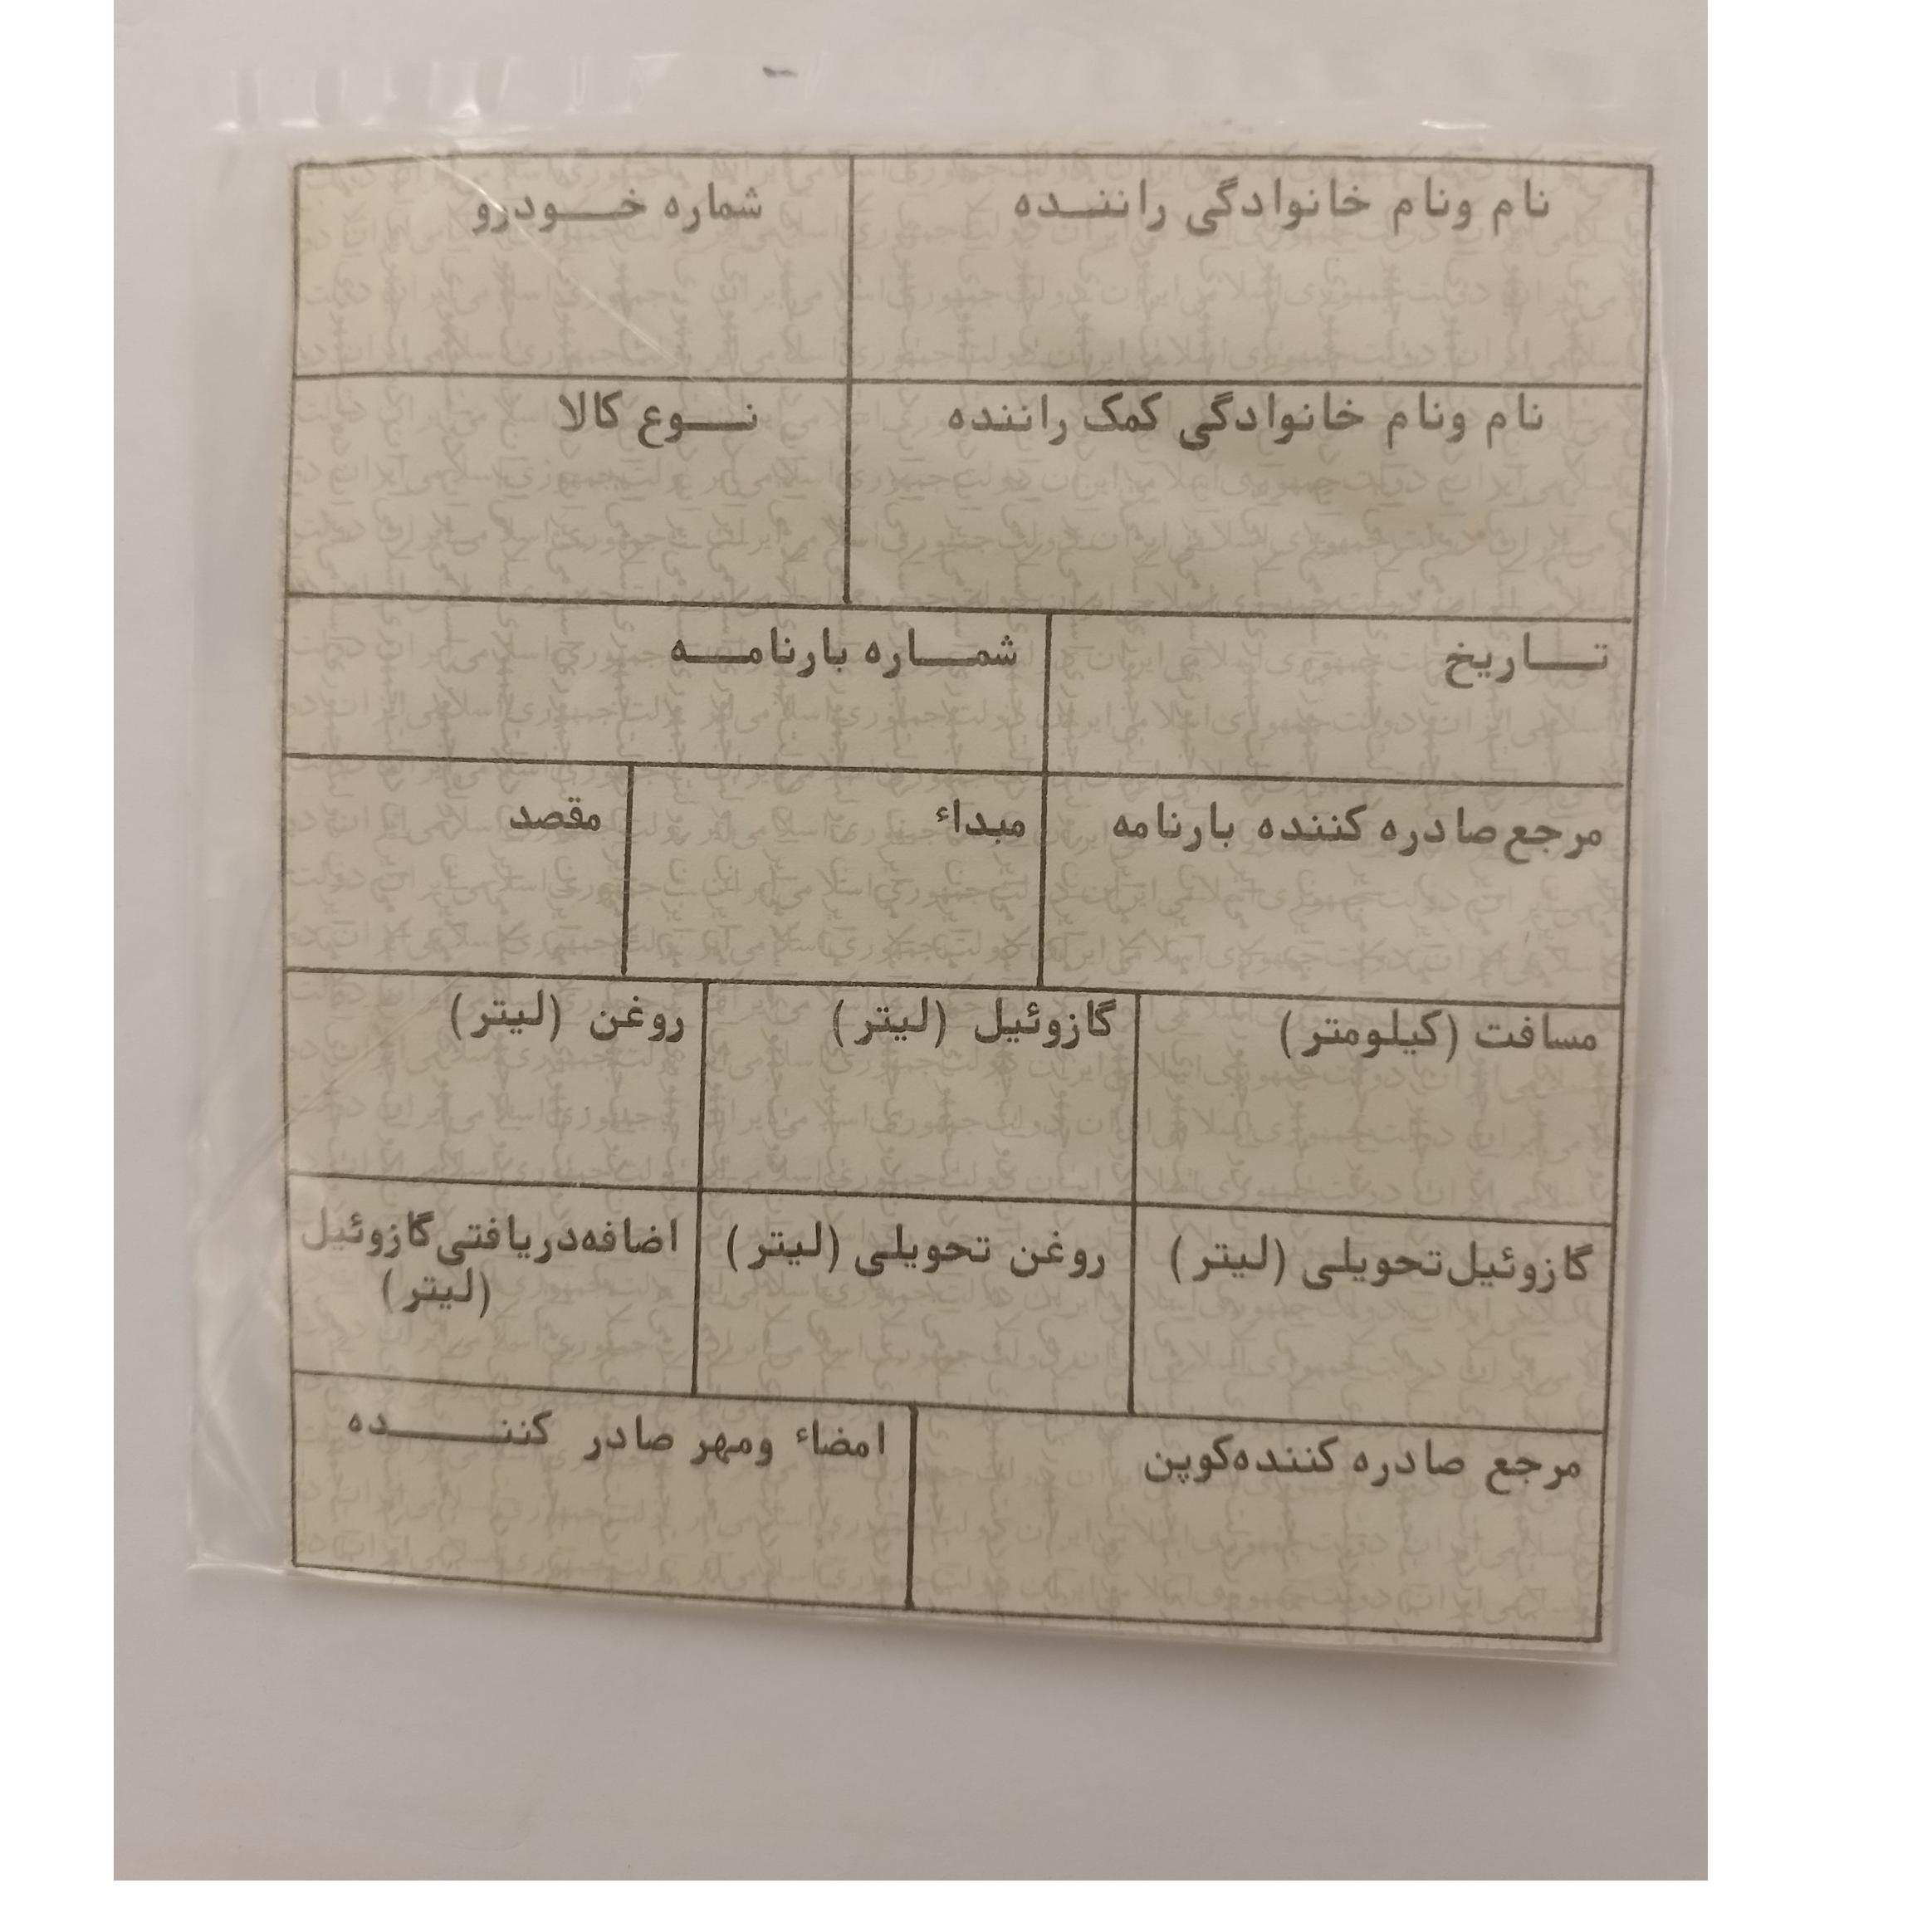 نام ونام خانوادگی راننده
شماره خودرو
نام ونام خانوادگی کمک راننده
نوع کالا
تاریخ
شماره بارنامه
مرجع صادره کننده بارنامه
مبداء
مقصد
مسافت (کیلومتر)
گازوئیل (لیتر)
روغن (لیتر)
گازوئیل تحویلی (لیتر)
روغن تحویلی (لیتر)
اضافه دریافتی گازوئیل
(لیتر)
مرجع صادره کننده کوپن
امضاء ومهر صادر کننده